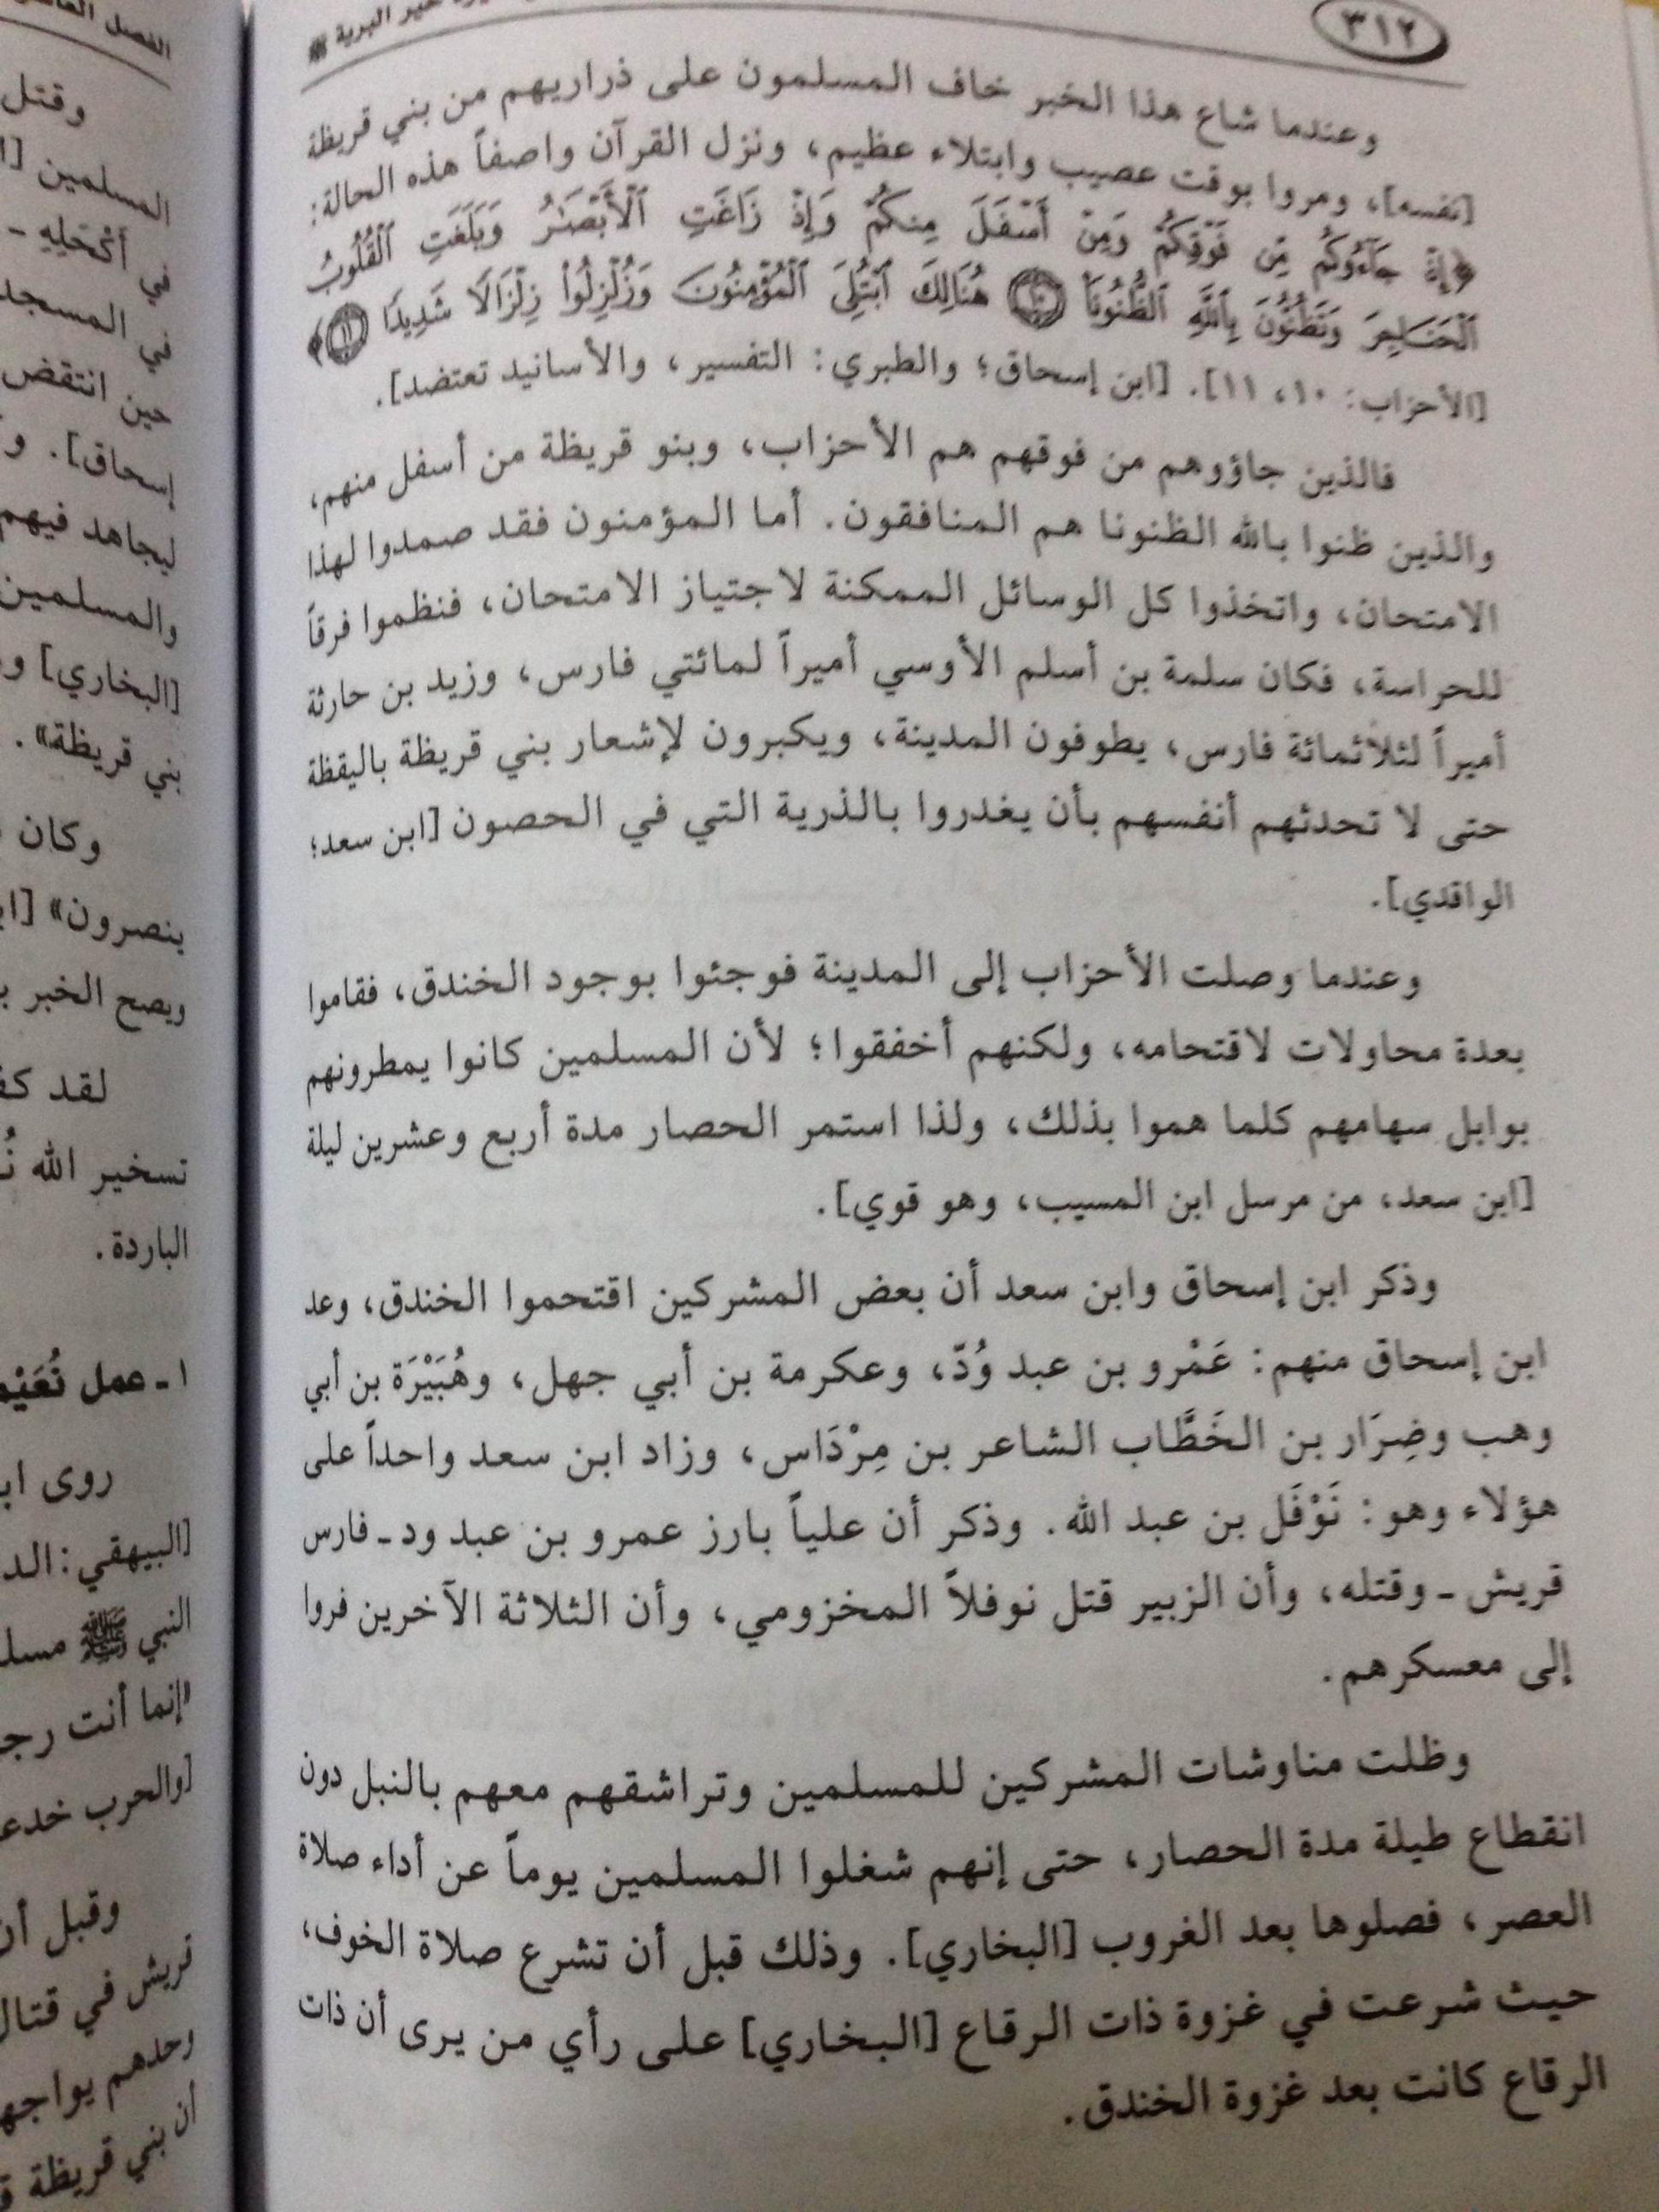 ٣١٢
البرية ﷺ
وعندما شاع هذا الخبر خاف المسلمون على ذراريهم من بني قريظة
[نفسه]، ومروا بوقت عصيب وابتلاء عظيم، ونزل القرآن واصفاً هذه الحالة:
﴿إِذْ جَآءُوكُم مِّن فَوْقِكُمْ وَمِنْ أَسْفَلَ مِنكُمْ وَإِذْ زَاغَتِ ٱلْأَبْصَـٰرُ وَبَلَغَتِ ٱلْقُلُوبُ
ٱلْحَنَاجِرَ وَتَظُنُّونَ بِٱللَّهِ ٱلظُّنُونَا۠ ۝١٠ هُنَالِكَ ٱبْتُلِىَ ٱلْمُؤْمِنُونَ وَزُلْزِلُوا۟ زِلْزَالًا شَدِيدًا ۝١١﴾
[الأحزاب: ١٠، ١١]. [ابن إسحاق؛ والطبري: التفسير، والأسانيد تعتضد].
فالذين جاؤوهم من فوقهم هم الأحزاب، وبنو قريظة من أسفل منهم،
والذين ظنوا بالله الظنونا هم المنافقون. أما المؤمنون فقد صمدوا لهذا
الامتحان، واتخذوا كل الوسائل الممكنة لاجتياز الامتحان، فنظموا فرقاً
للحراسة، فكان سلمة بن أسلم الأوسي أميراً لمائتي فارس، وزيد بن حارثة
أميراً لثلاثمائة فارس، يطوفون المدينة، ويكبرون لإشعار بني قريظة باليقظة
حتى لا تحدثهم أنفسهم بأن يغدروا بالذرية التي في الحصون [ابن سعد؛
الواقدي].
وعندما وصلت الأحزاب إلى المدينة فوجئوا بوجود الخندق، فقاموا
بعدة محاولات لاقتحامه، ولكنهم أخفقوا؛ لأن المسلمين كانوا يمطرونهم
بوابل سهامهم كلما هموا بذلك، ولذا استمر الحصار مدة أربع وعشرين ليلة
[ابن سعد، من مرسل ابن المسيب، وهو قوي].
وذكر ابن إسحاق وابن سعد أن بعض المشركين اقتحموا الخندق، وعد
ابن إسحاق منهم: عَمْرو بن عبد وُدّ، وعكرمة بن أبي جهل، وهُبَيْرَة بن أبي
وهب وضِرَار بن الخَطَّاب الشاعر بن مِرْدَاس، وزاد ابن سعد واحداً على
هؤلاء وهو: نَوْفَل بن عبد الله. وذكر أن علياً بارز عمرو بن عبد ود ـ فارس
قريش ـ وقتله، وأن الزبير قتل نوفلاً المخزومي، وأن الثلاثة الآخرين فروا
إلى معسكرهم.
وظلت مناوشات المشركين للمسلمين وتراشقهم معهم بالنبل دون
انقطاع طيلة مدة الحصار، حتى إنهم شغلوا المسلمين يوماً عن أداء صلاة
العصر، فصلوها بعد الغروب [البخاري]. وذلك قبل أن تشرع صلاة الخوف،
حيث شرعت في غزوة ذات الرقاع [البخاري] على رأي من يرى أن ذات
الرقاع كانت بعد غزوة الخندق.
الفصل
وقتل
المسلمين
في أَكْحَلِهِ ـ
في المسجد
حين انتقض
إسحاق]. و
ليجاهد فيهم
والمسلمين
[البخاري]
بني قريظة».
وكان
ينصرون»
ويصح الخبر
لقد
تسخير الله
الباردة.
١ ـ عمل
روى
[البيهقي:
النبي ﷺ
«إنما أنت
[والحرب
وقبل أن
قريش في قتال
وحدهم
أن بني قريظة